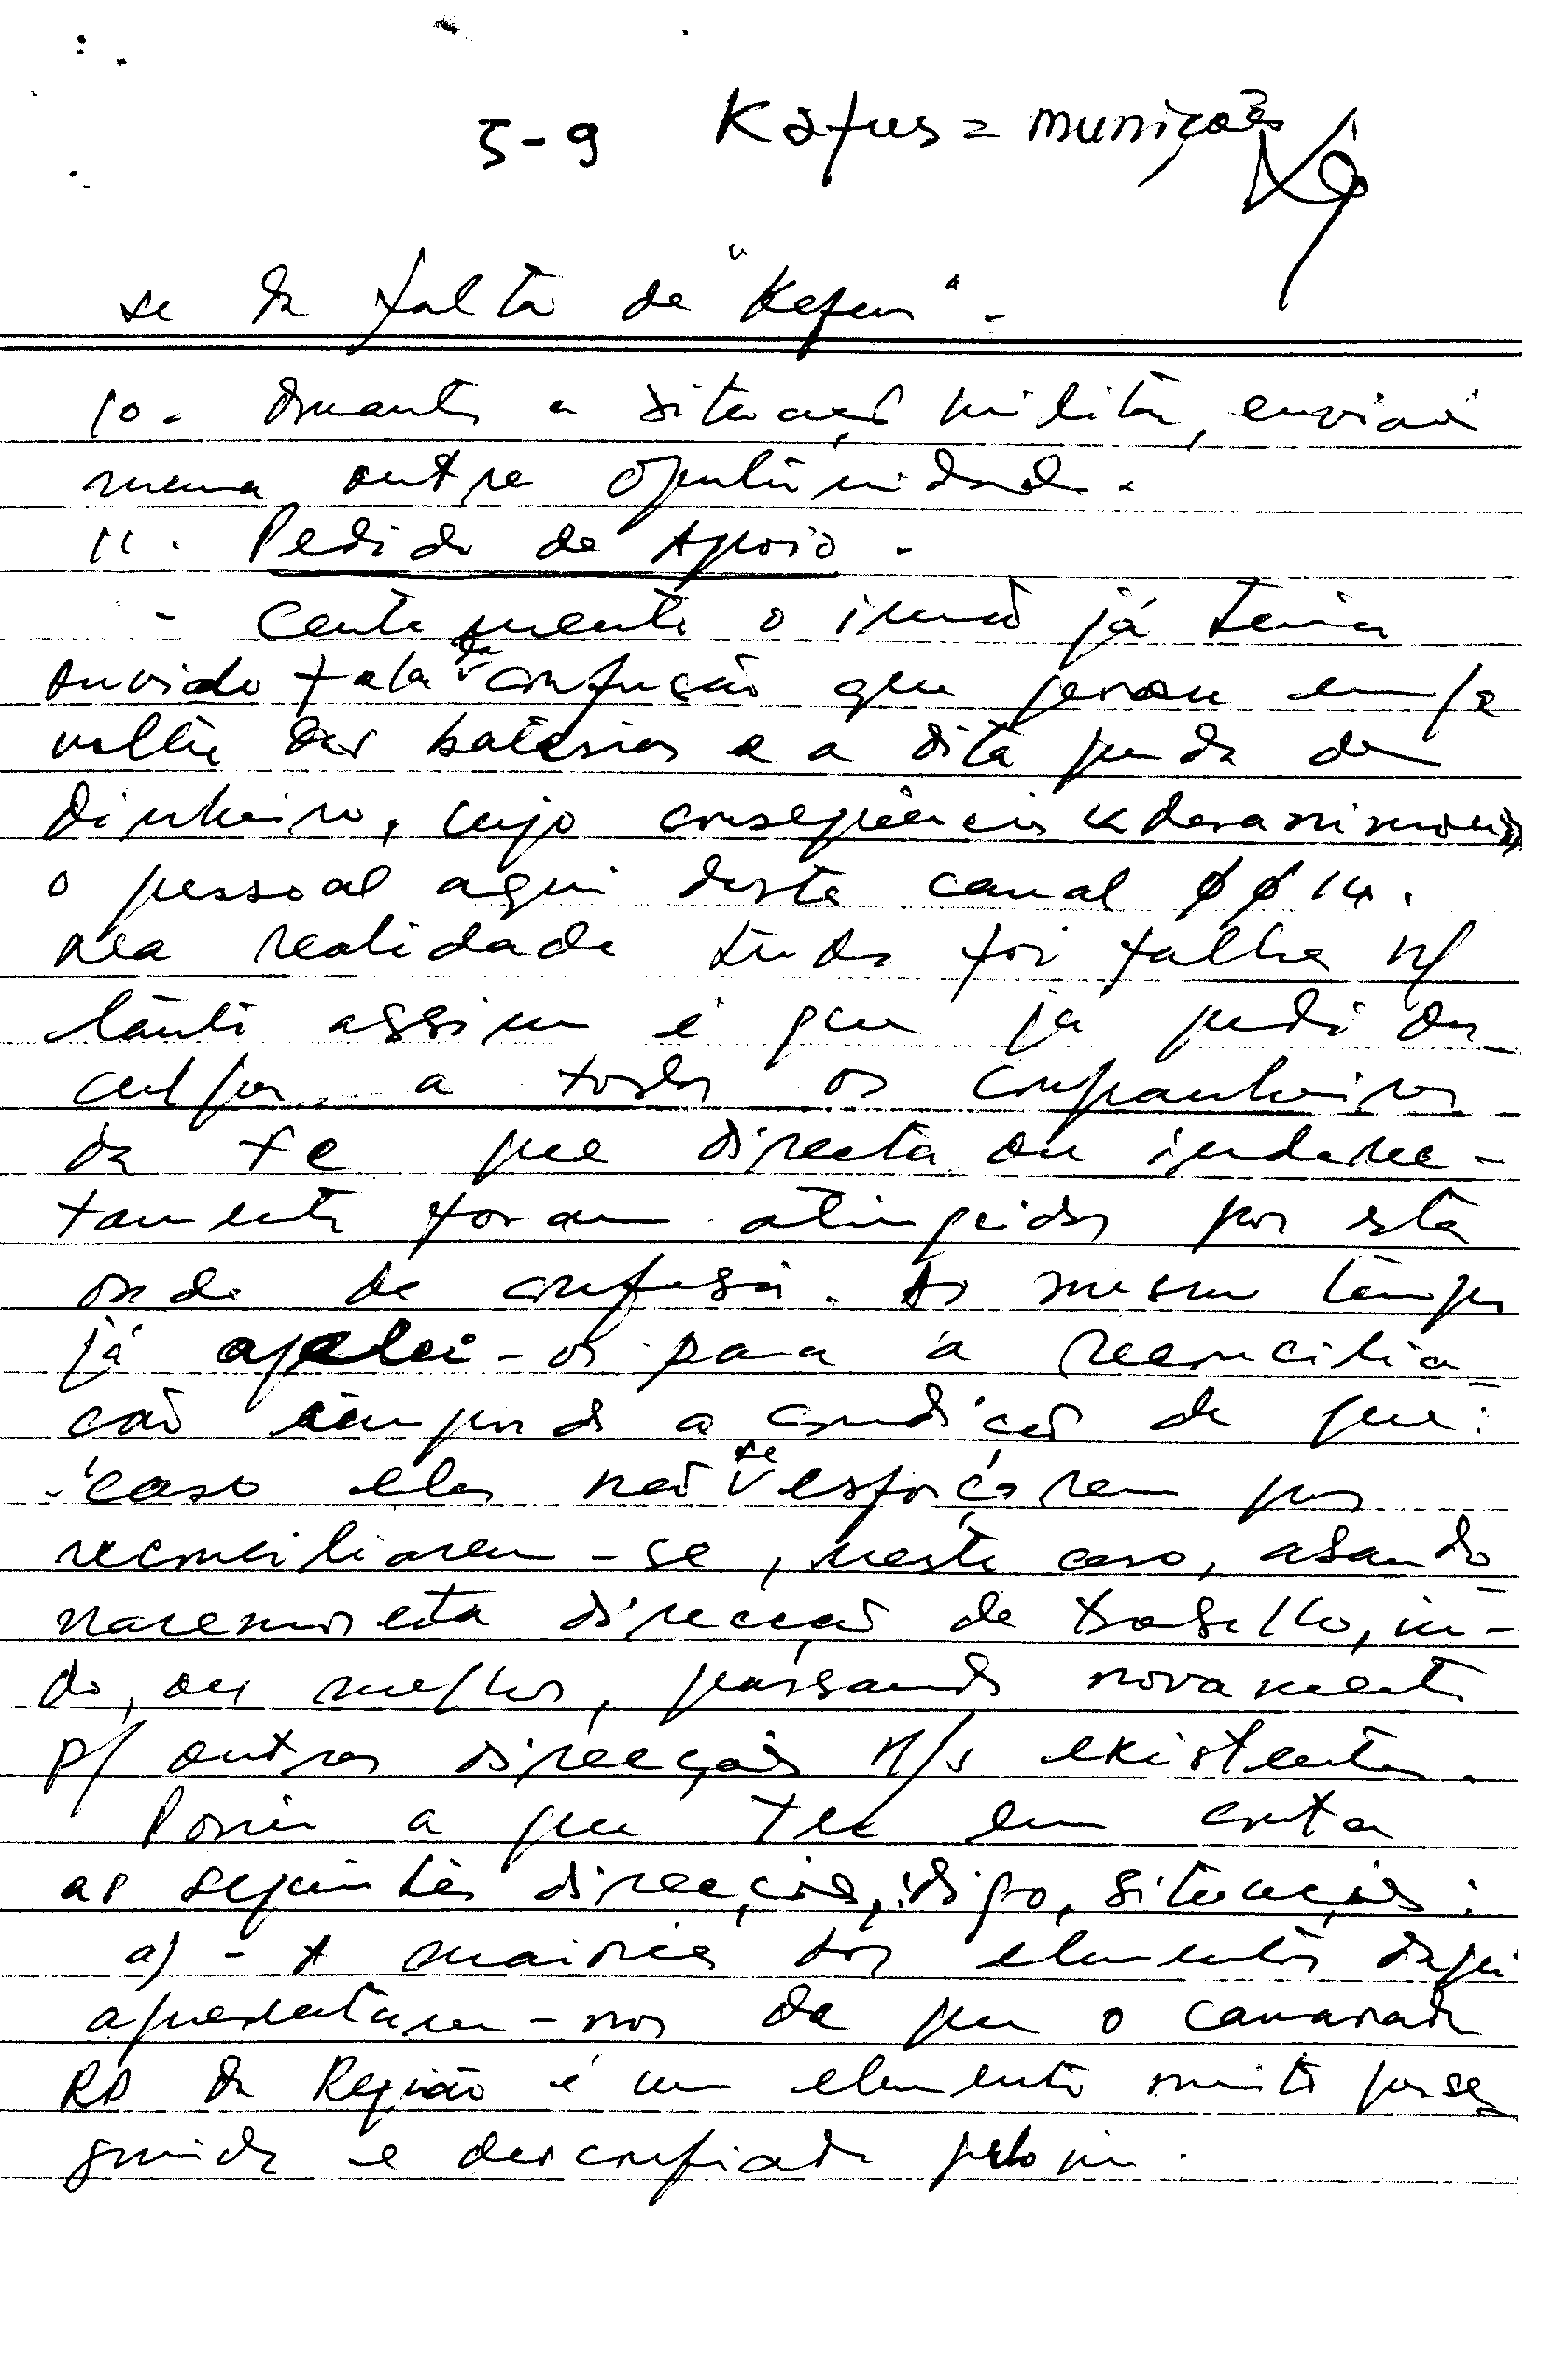 5-9 Kafus = munições
se da falta de "Kafus".
10. Quanto a situação militar, enviarei
numa outra oportunidade.
11. Pedido de Apoio.
- Certamente o irmão já teria
ouvido falar da confusão que gerou em
volta das baterias e a dita perda de
dinheiro, cujo consequência «desanimou»
o pessoal aqui deste canal ØØ14.
Na realidade tudo foi falha n/
tanto assim é que já pedi des-
culpas a todos os companheiros
da FC que directa ou inderec-
tamente foram atingidos por esta
onda de confusão. Ao mesmo tempo
já apelei-os para a reconcilia-
ção impondo a condição de que:
- caso eles não se esforçarem por
reconciliarem-se, neste caso, abando
naremos esta direcção de trabalho, in-
do, ou melhor, passando novamente
p/ outras direcções n/s existentes.
Porém a que ter em conta
as seguintes direcções, digo, situações:
a) - A maioria dos elementos daqui
apresentaram-nos de que o camarada
RD da Região é um elemento muito perse
guido e desconfiado pelo in.